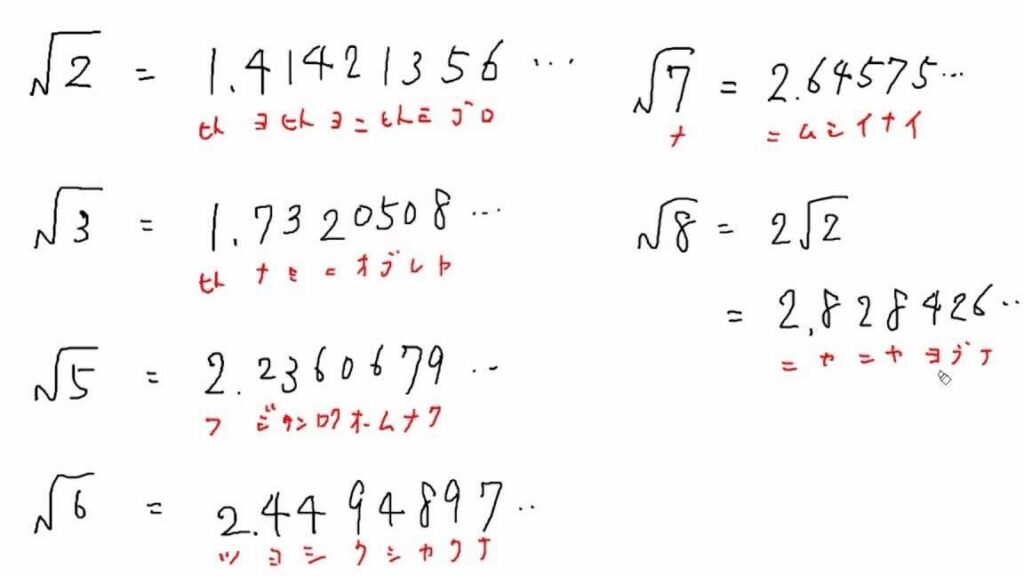 √2 = 1.41421356 ...
ヒト ヨ ヒト ヨ ニ ヒトミ ゴロ
√3 = 1.7320508 ...
ヒト ナ ミ ニ オ ゴ レ ヤ
√5 = 2.2360679 ...
フ ジサンロクオームナク
√6 = 2.4494897 ..
ツ ヨ シ ク シ ヤ ク ナ
√7 = 2.64575...
ナ ニ ム シ イ ナ イ
√8 = 2√2
= 2.828426 ..
ニ ヤ ニ ヤ ヨ ブ ナ